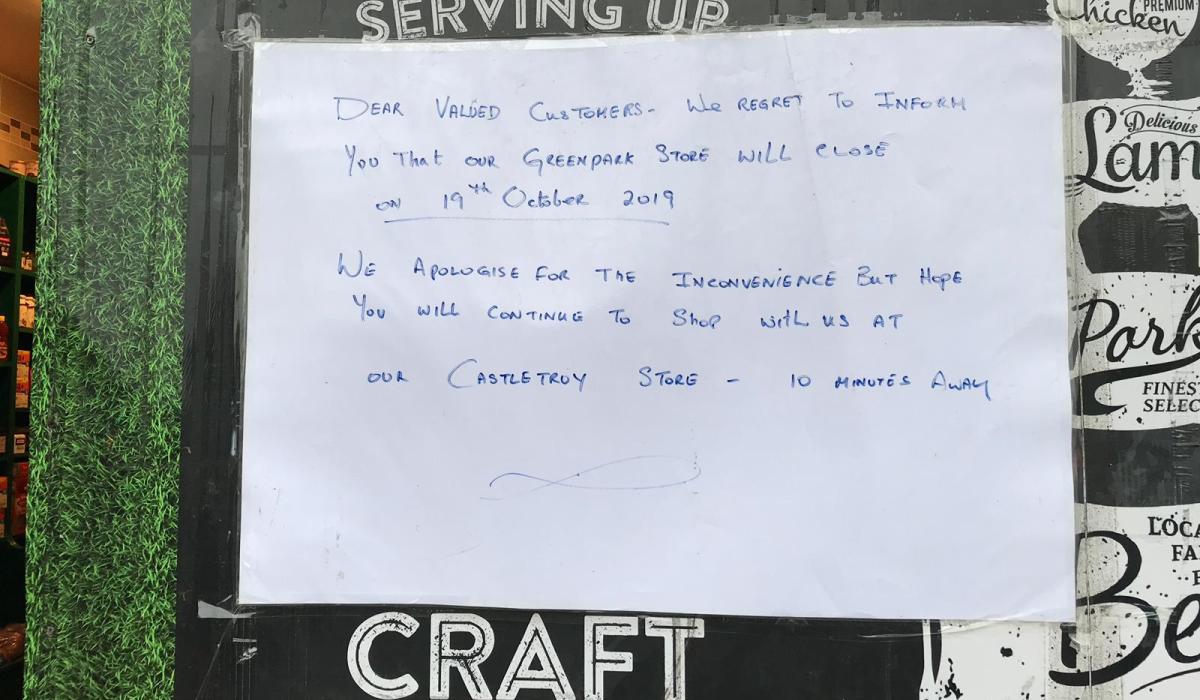 SERVING UP
DEAR VALUED CUSTOMERS - WE REGRET TO INFORM
YOU THAT OUR GREENPARK STORE WILL CLOSE
ON 19th October 2019
WE APOLOGISE FOR THE INCONVENIENCE BUT HOPE
YOU WILL CONTINUE TO SHOP WITH US AT
OUR CASTLETROY STORE - 10 MINUTES AWAY
CRAFT
PREMIUM
Chicken
Delicious
Lam
Pork
FINES
SELEC
LOCA
FA
Be